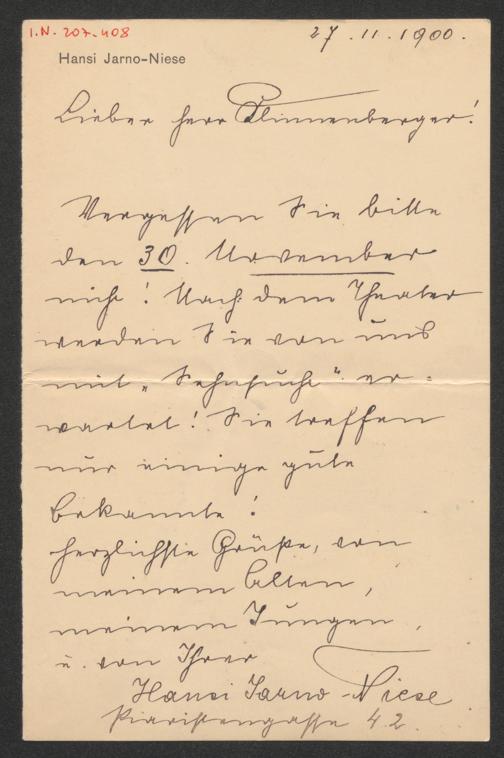 I.N. 207.408
27.11.1900.
Hansi Jarno-Niese
Lieber Herr Blumenberger!
Vergessen Sie bitte
den 30. November
nicht! Nach dem Theater
werden Sie von uns
mit „Sehnsucht" er-
wartet! Sie treffen
nur einige gute
Bekannte!
Herzlichste Grüße, von
meinem Alten,
meinem Jungen,
u. von Ihrer
Hansi Jarno-Niese
Piaristengasse 42.